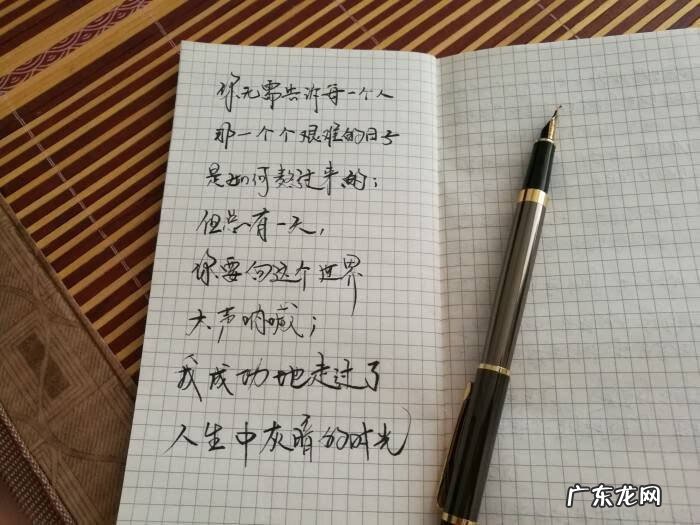 你无需告诉每一个人
那一个个艰难的日子
是如何熬过来的；
但总有一天，
你要向这个世界
大声呐喊；
我成功地走过了
人生中灰暗的时光
广东龙网